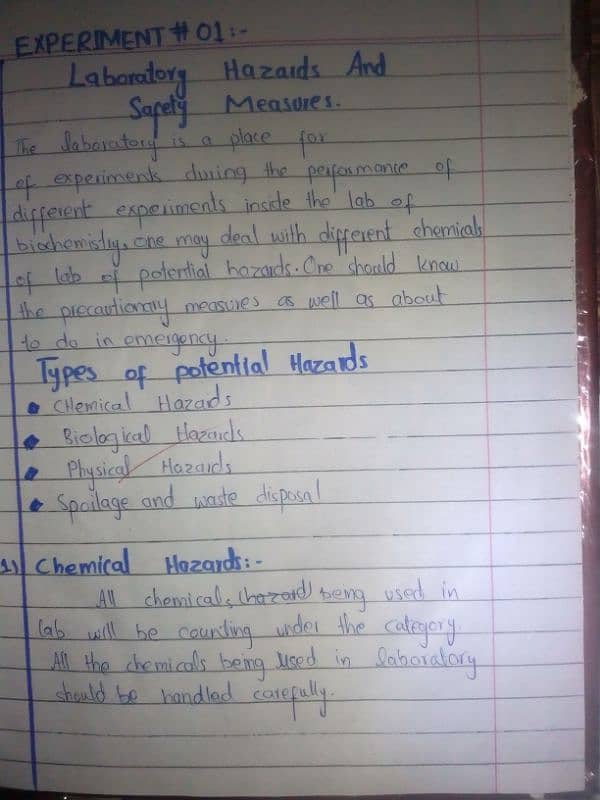 EXPERIMENT # 01:-
Laboratory Hazards And
Safety Measures.
The laboratory is a place for
of experiments during the performance of
different experiments inside the lab of
biochemistry, one may deal with different chemicals
of lab of potential hazards. One should know
the precautionary measures as well as about
to do in emergency.
Types of potential Hazards
• CHemical Hazards
• Biological Hazards
• Physical Hazards
• Spoilage and waste disposal
1) Chemical Hazards:-
All chemicals (hazard) being used in
lab will be counting under the category.
All the chemicals being used in laboratory
should be handled carefully.